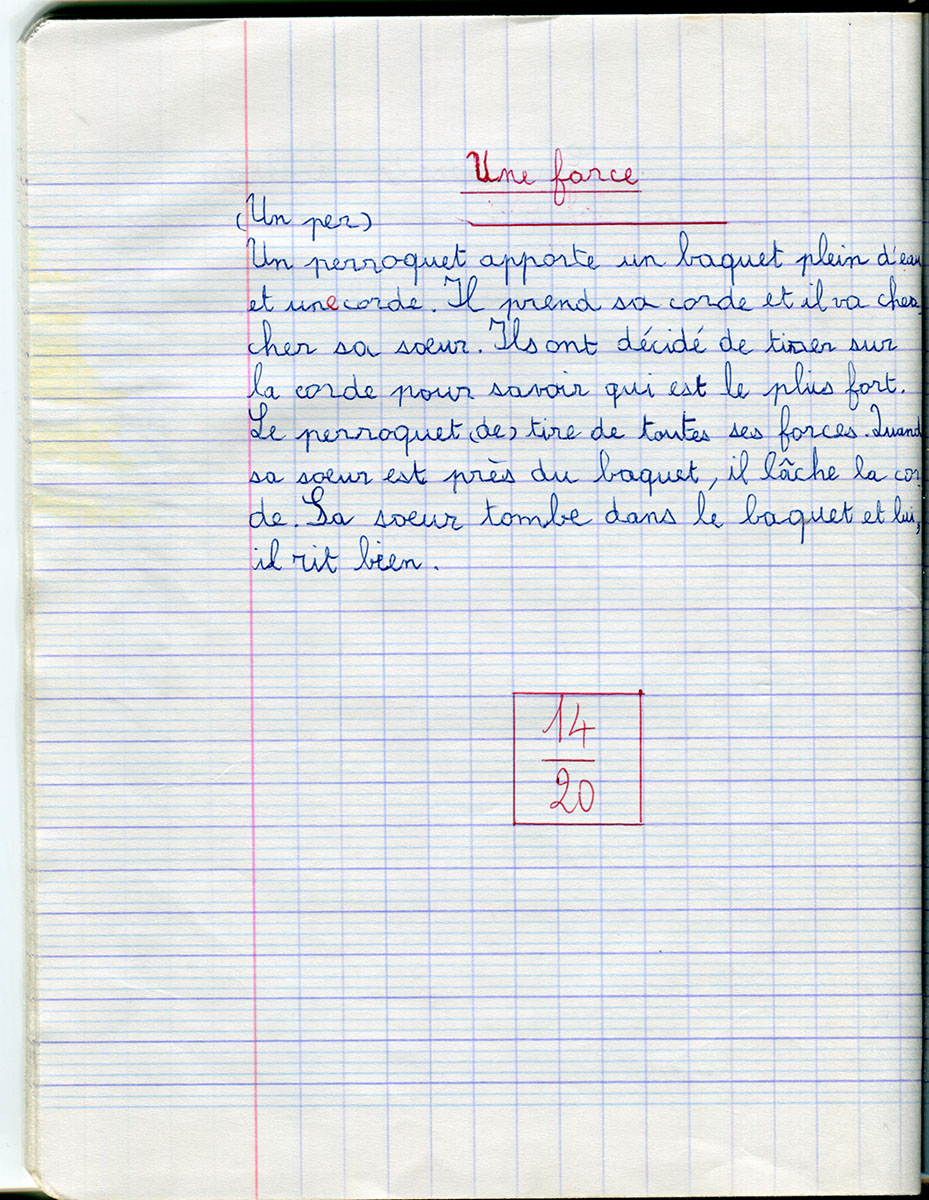 Une farce
(Un per)
Un perroquet apporte un baquet plein d'eau
et une corde. Il prend sa corde et il va cher-
cher sa soeur. Ils ont décidé de tirer sur
la corde pour savoir qui est le plus fort.
Le perroquet (de) tire de toutes ses forces. Quand
sa soeur est près du baquet, il lâche la cor-
de. Sa soeur tombe dans le baquet et lui,
il rit bien.
14
20